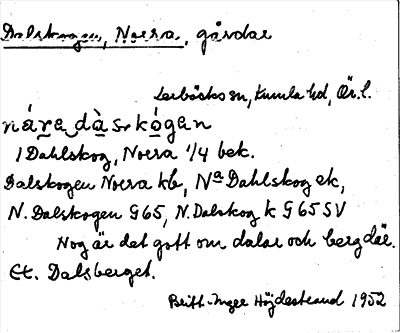 Dalskogen, Norra, gårdar
Lerbäcks sn, Kumla hd, Ör. l.
nára dàskógen
1 Dahlskog, Norra 1/4 bek.
Dalskogen Norra kb, Na Dahlskog ek,
N. Dalskogen G65, N. Dalskog k G 65 SV
Nog är det gott om dalar och berg där.
Et. Dalsberget.
Britt-Inger Höjdestrand 1952